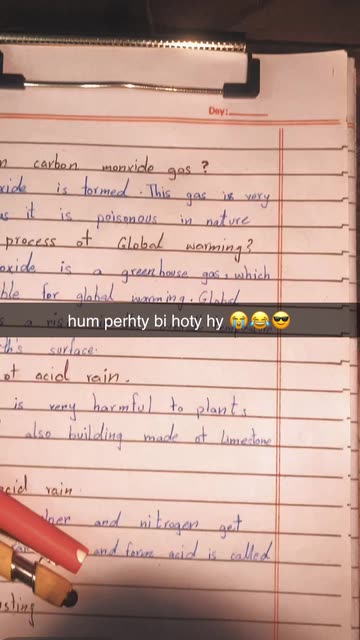 Day:
n carbon monxide gas?
xide is formed. This gas is very
as it is poisonous in nature
process of Global warming?
oxide is a green house gas, which
ble for glabal warming. Global
hum perhty bi hoty hy 😭😂😎
th's surface.
of acid rain.
is very harmful to plants,
also building made of Limestone
acid rain
and nitrogen get
and form acid is called
sting